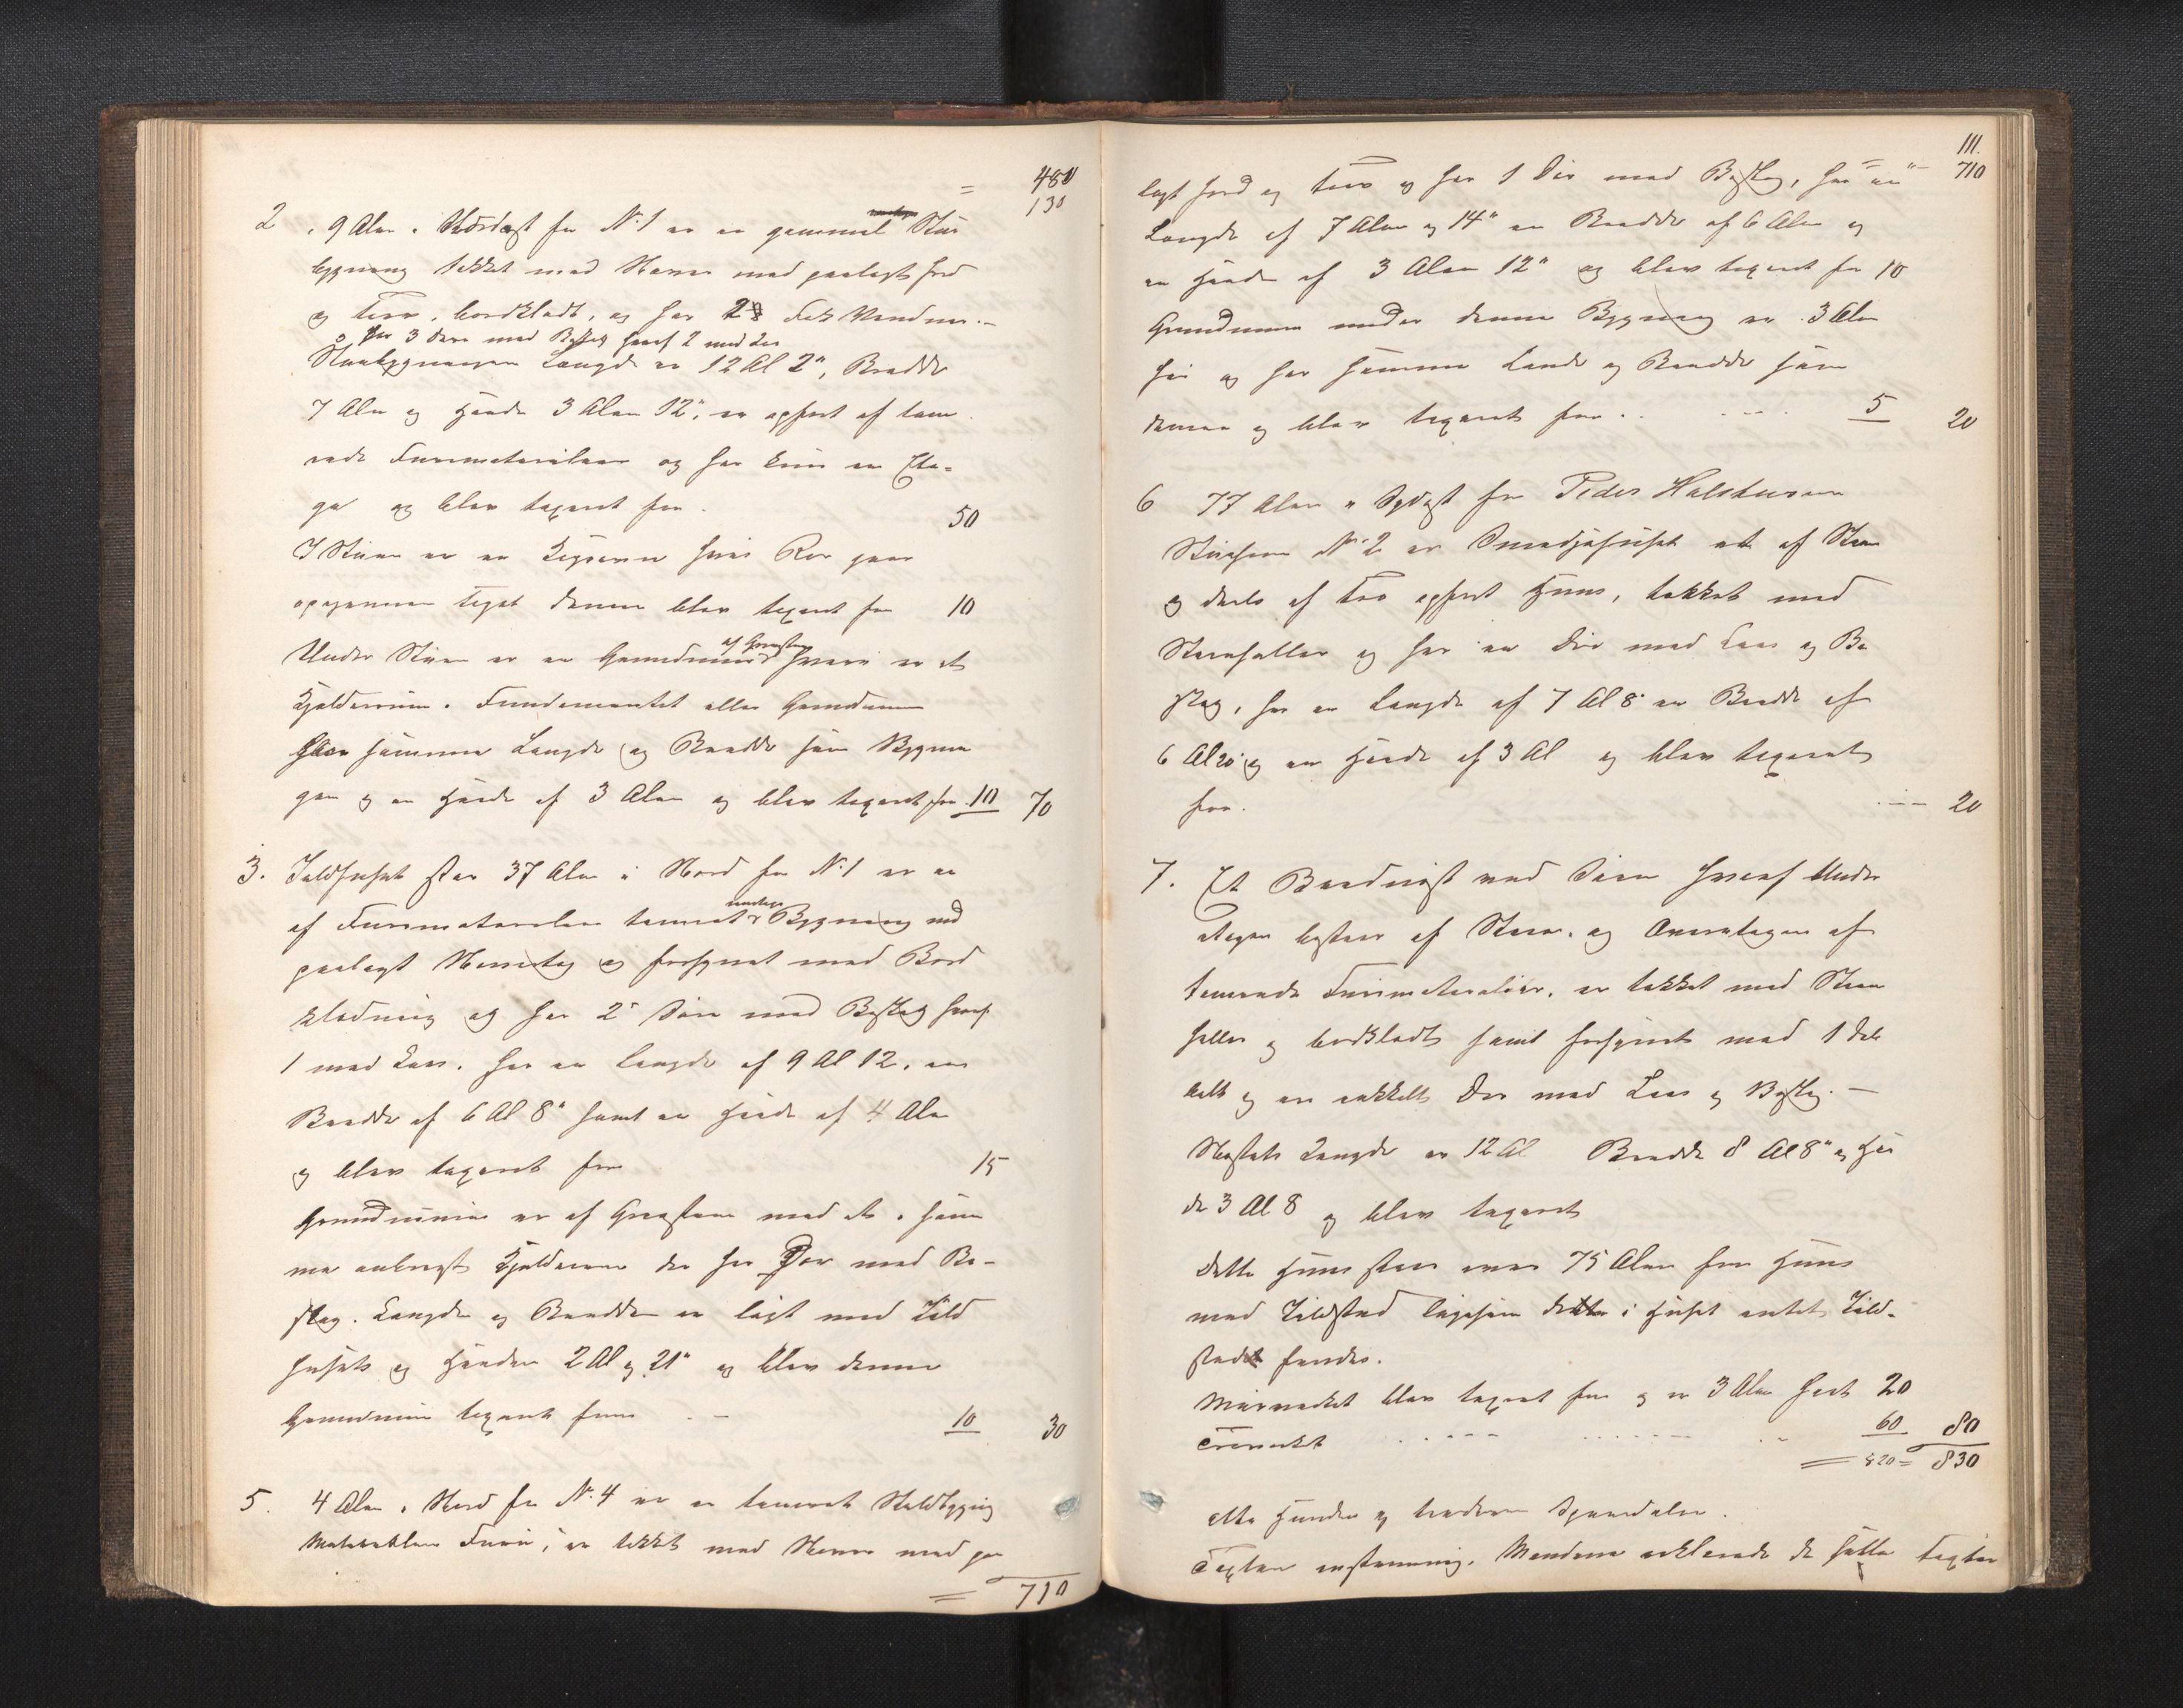 = 480
130
2 . 9 Alen i Nordost for N.1 er en gammel Stue
bygning tekket med Næver med paalagt Jord
og Torv, bordklædt, og har 2 Fek Vinduer.-
o har 3 Døre med Beslag hvoraf 2 med Laas
Stuebygningen Længde er 12 Al 2", Bredde
7 Alen og Høide 3 Alen 12", er opført af tøm
rede Furematerialier og har kun en Eta-
ge og blev taxeret for. 50
I Stuen er en Kogeovn hvis Rør gaar
op gjennem Taget denne blev taxeret for 10
Under Stuen er en Grundmuur af Graasteen hvori er et
Kjelderrum. Fundamentet eller Grundmuren
har samme Længde og Bredde som Bygnin
gen og en Høide af 3 Alen og blev taxeret for 10 70
3. Ildhuset staar 37 Alen i Nord for N.1 er en
af Furematerialier tømret Bygning med
paalagt Nævertag og forsynet med Bord
klædning og har 2 Døre med Beslag hvoraf
1 med Laas. har en Længde af 9 Al 12, en
Bredde af 6 Al 8" samt en Høide af 4 Alen
og blev taxeret for 15
Grundmuren er af Graasteen med et i sam
me anbragt Kjelderrum der har Dør med Be-
slag. Længde og Bredde er ligt med Ild
husets og Høiden 2 Al og 21" og blev denne
Grundmuur taxeret for . - 10 30
5. 4 Alen i Nord for N.4 er en tømret Staldbygning
Materialier Furu, er tekket med Næver med paa
= 710
111.
lagt Jord og Torv og har 1 Dør med Beslag, har en 710
Længde af 7 Alen og 14" en Bredde af 6 Alen og
en Høide af 3 Alen 12" og blev taxeret for 10
Grundmuren under denne Bygning er 3 Alen
høi og har samme Længde og Bredde som
denne og blev taxeret for . . - - - . 5 20
6 77 Alen i Sydost for Peder Halstensen
Stuehuus N.2 er Smedjehuset et af Steen
og deels af Træ opført Huus, tekket med
Steenheller og har en Dør med Laas og Be
slag, har en Længde af 7 Al 8" en Bredde af
6 Al 20" og en Høide af 3 Al og blev taxeret
for. - - - 20
7. Et Baadnøst ved Søen hvoraf Under
etagen bestaar af Steen og Overetagen af
tømrede Furematerialier, er tekket med Steen
heller og bordklædt samt forsynet med 1 dob
belt og en enkelt Dør med Laas og Beslag. -
Nøstets Længde er 12 Al Bredde 8 Al 8" og Høi
de 3 Al 8 og blev taxeret
Dette Huus staar over 75 Alen fra Huus
med Ildsted ligesom der i Huset intet Ild-
sted findes.
Muurværket blev taxeret for og er 3 Alen høit 20
Træværket . . - - - . . . - - - . - 60 80
= 820 = 830
otte Hundre og tredive Speciedaler.
Taxten enstemmig. Mændene erklærede de satte Taxter